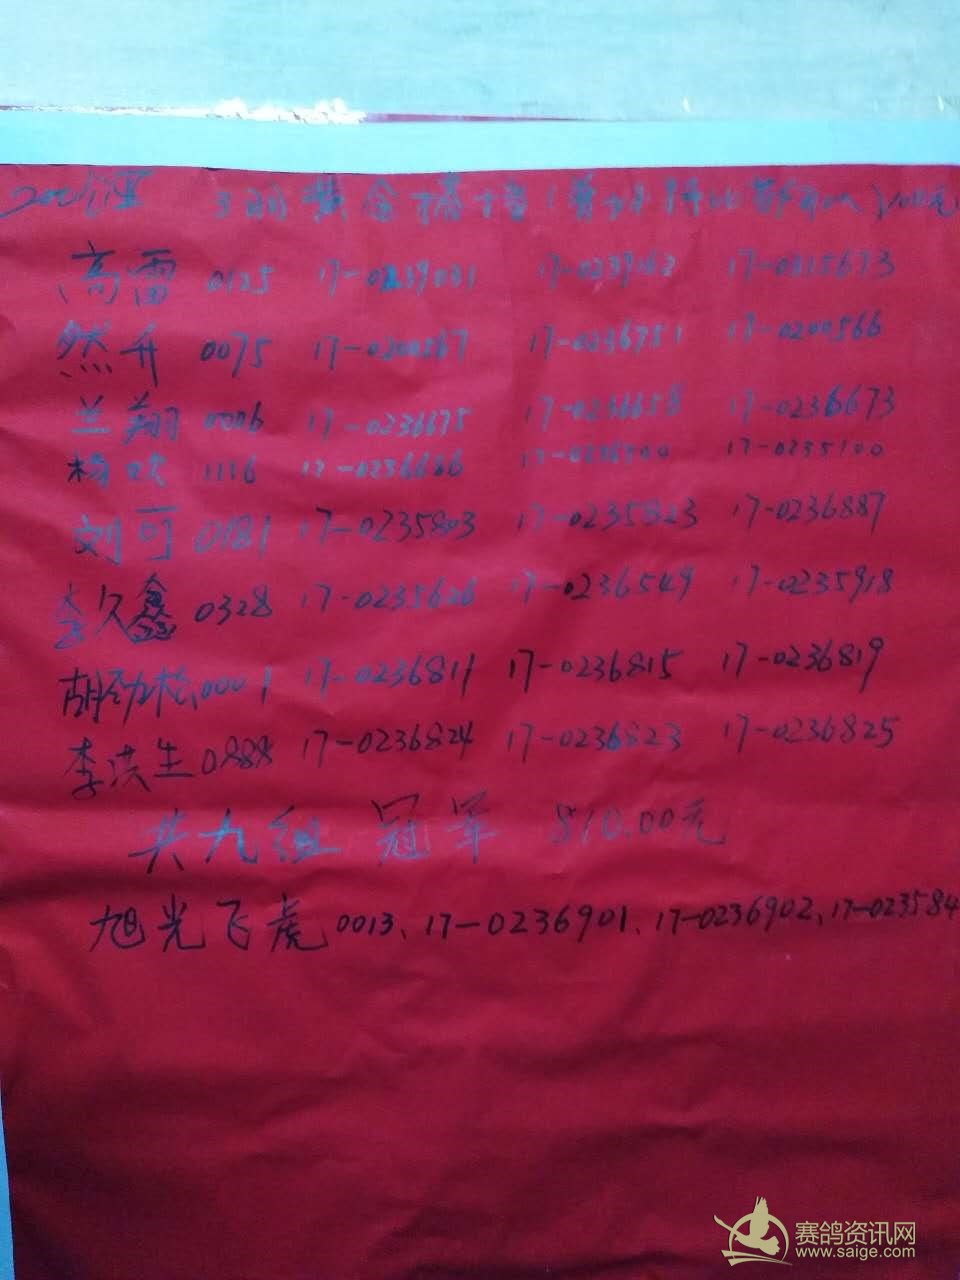 200公里 3羽黄金擂台
高雷 0125 17-0239031 17-0239162 17-0315673
然升 0075 17-0200567 17-0236751 17-0200566
兰翔 0006 17-0236675 17-0236658 17-0236673
杨欢 1116 17-0236686 17-0236500 17-0235100
刘可 0181 17-0235803 17-0235823 17-0236887
李久鑫 0328 17-0235626 17-0236549 17-0235918
胡劲松 0001 17-0236811 17-0236815 17-0236819
李洪生 0888 17-0236824 17-0236823 17-0236825
共九组 冠军 810.00元
旭光飞虎 0013、17-0236901、17-0236902、17-023584
赛鸽资讯网
www.saige.com